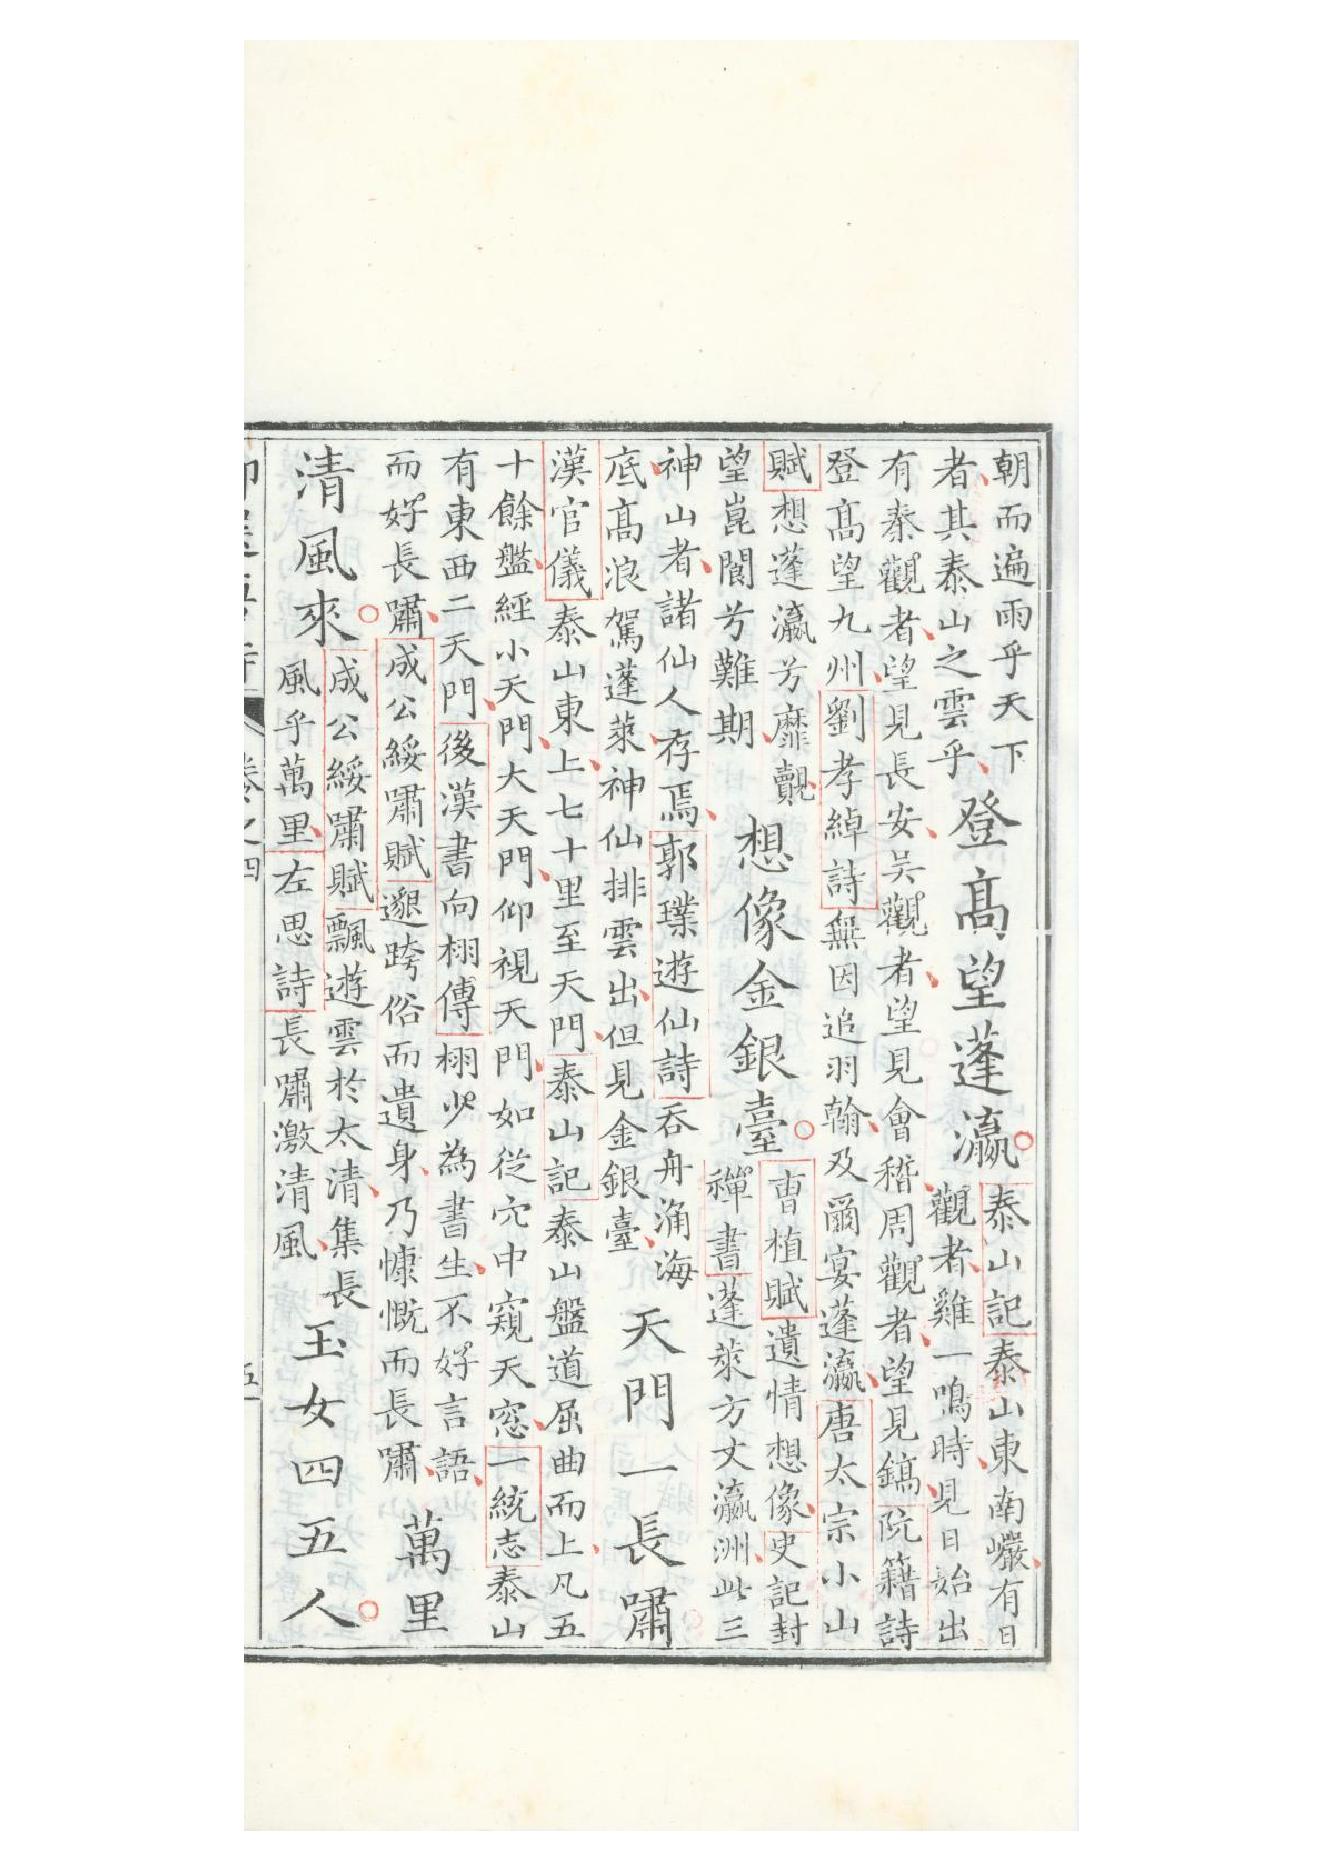 朝而遍雨乎天下
者其泰山之雲乎
登高望蓬瀛
泰山記泰山東南巖有日
觀者雞一鳴時見日始出
有秦觀者望見長安吳觀者望見會稽周觀者望見鎬阮籍詩
登高望九州劉孝綽詩無因追羽翰及爾宴蓬瀛唐太宗小山
賦想蓬瀛兮靡覿
望崑閬兮難期
想像金銀臺
曹植賦遺情想像史記封
禪書蓬萊方丈瀛洲此三
神山者諸仙人存焉郭璞遊仙詩吞舟涌海
底高浪駕蓬萊神仙排雲出但見金銀臺
天門一長嘯
漢官儀泰山東上七十里至天門泰山記泰山盤道屈曲而上凡五
十餘盤經小天門大天門仰視天門如從穴中窺天窓一統志泰山
有東西二天門後漢書向栩傳栩少為書生不好言語
而好長嘯成公綏嘯賦邈跨俗而遺身乃慷慨而長嘯
萬里
清風來
成公綏嘯賦飄遊雲於太清集長
風乎萬里左思詩長嘯激清風
玉女四五人